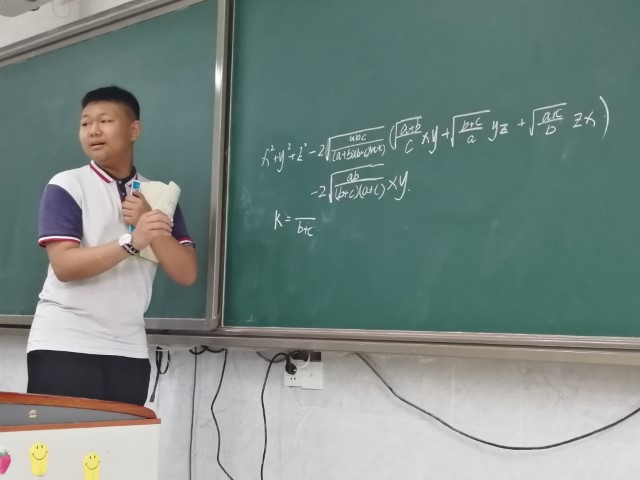 x²+y²+z²-2√(abc/((a+b)(b+c)(a+c))) (√((a+b)/c) xy+√((b+c)/a) yz+√((a+c)/b) zx)
-2√(ab/((b+c)(a+c))) xy.
K= /(b+c)